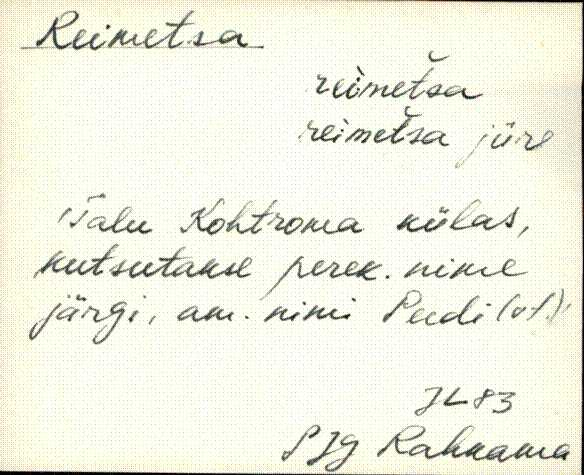 Reimetsa
reimeťsa
reimeťsa jüre
'Talu Kohtroma külas,
kutsutakse perek. nime
järgi, am. nimi Peedi (vt.)'
JL 83
PJg Rahnama